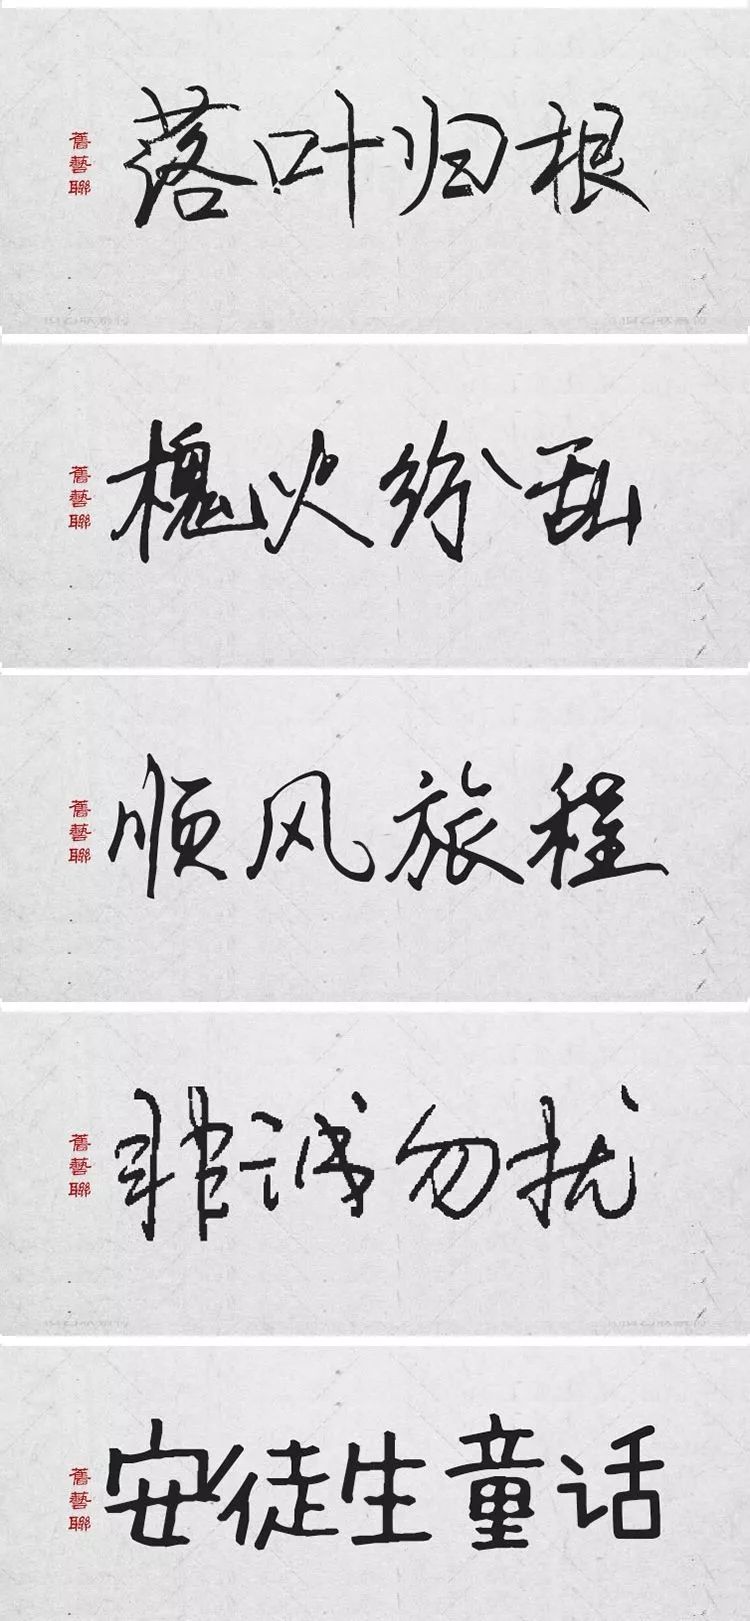 舊藝聯
落叶归根
舊藝聯
槐火纷乱
舊藝聯
顺风旅程
舊藝聯
非诚勿扰
舊藝聯
安徒生童话